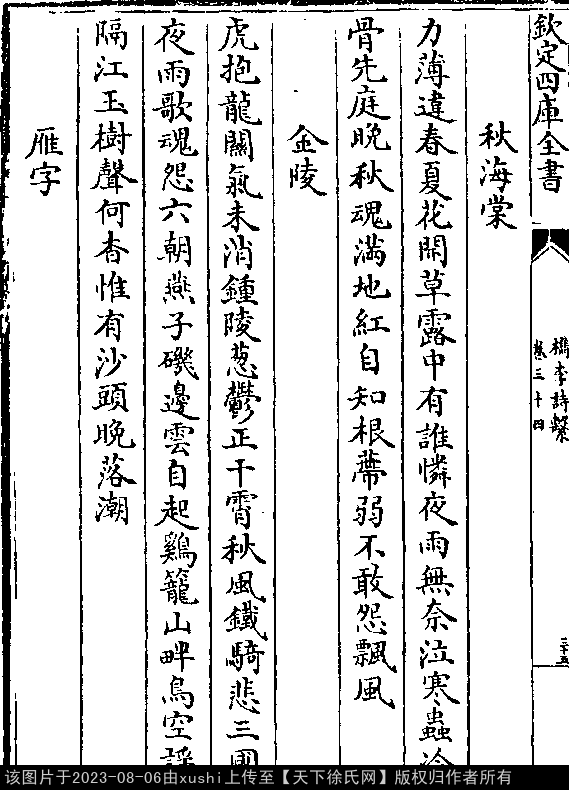 欽定四庫全書
檇李詩繫
卷三十四
三十五
秋海棠
力薄違春夏花開草露中有誰憐夜雨無奈泣寒蟲冷
骨先庭晚秋魂滿地紅自知根蔕弱不敢怨飄風
金陵
虎抱龍關氣未消鍾陵葱鬱正干霄秋風鐵騎悲三國
夜雨歌魂怨六朝燕子磯邊雲自起鷄籠山畔鳥空
隔江玉樹聲何杳惟有沙頭晚落潮
雁字
该图片于2023-08-06由xushi上传至【天下徐氏网】版权归作者所有